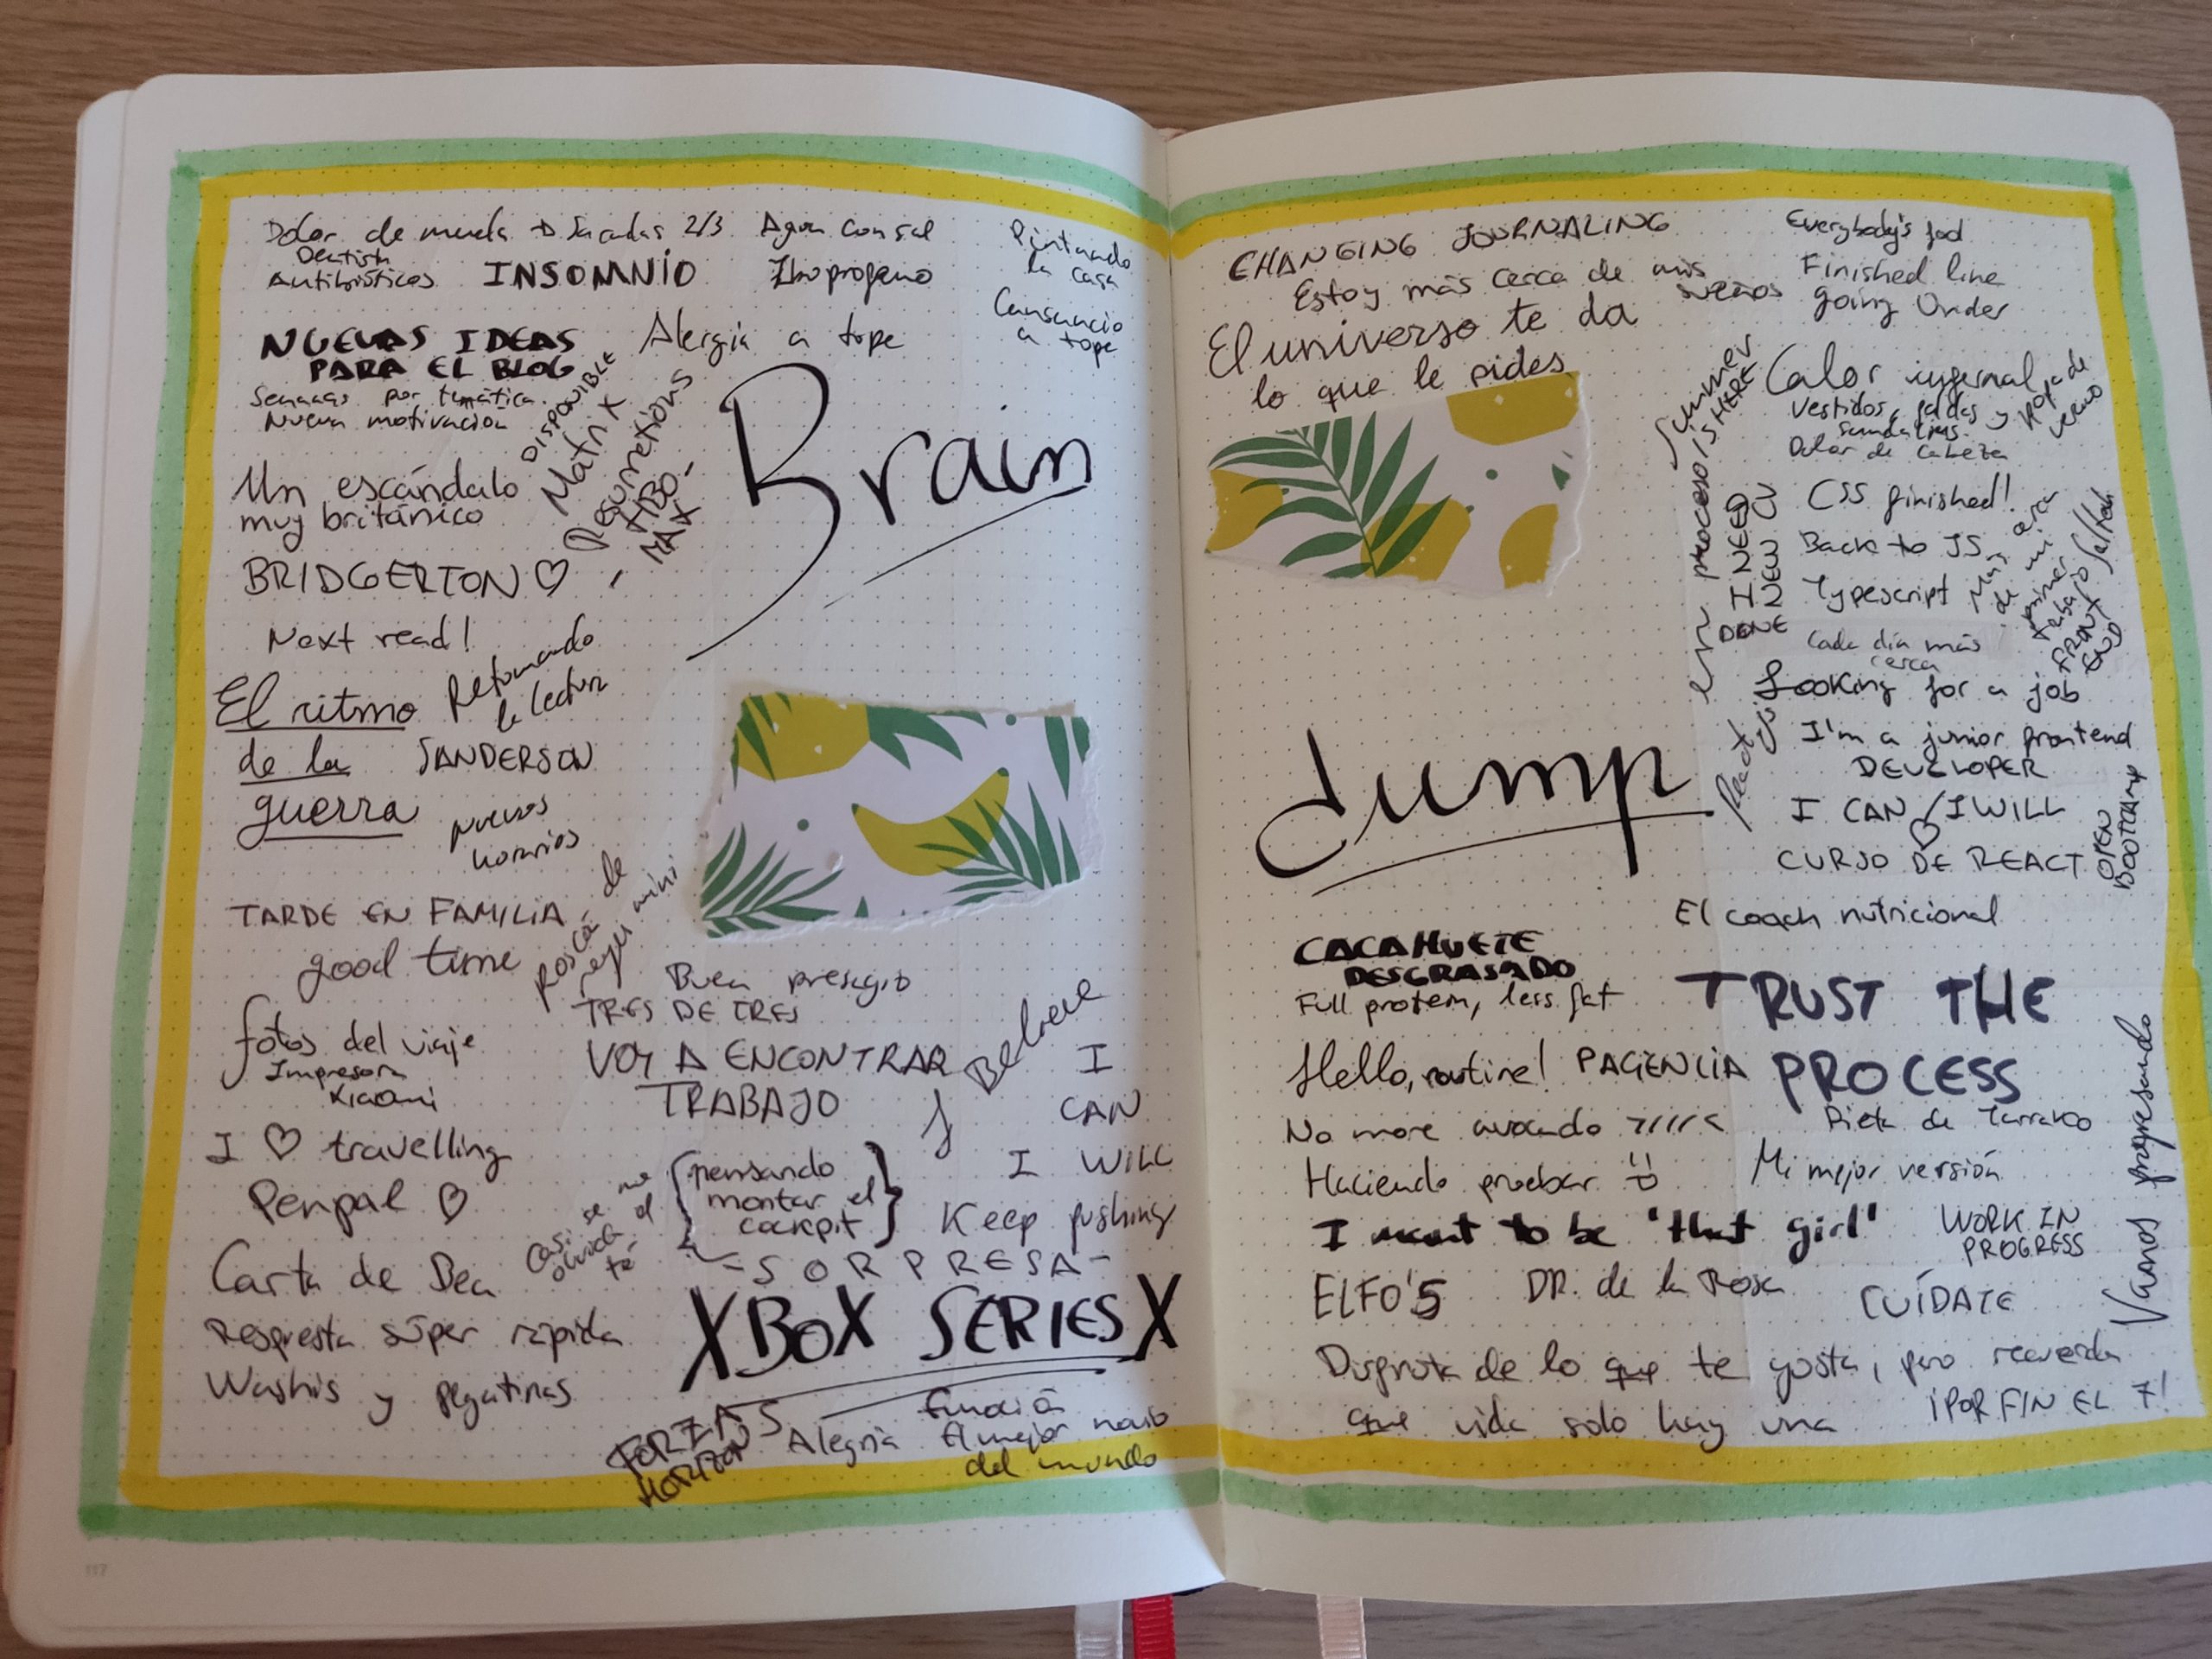 Dolor de muela → Sacadas 2/3 Agua con sal
Dentista
Antibióticos INSOMNIO Ibuprofeno
Pintando
la casa
Cansancio
a tope
NUEVAS IDEAS
PARA EL BLOG
Alergia a tope
Semanas por temática.
Nueva motivación
DISPONIBLE
Matrix
Resurrections
-HBO-
MAX
Brain
Un escándalo
muy británico
BRIDGERTON ♡
Next read!
El ritmo
de la
guerra
Retomando
la lectura
SANDERSON
nuevos
horarios
TARDE EN FAMILIA
good time
Rosca de
reyes mini
fotos del viaje
Impresora
Xiaomi
Buen presagio
TRES DE TRES
VOY A ENCONTRAR
TRABAJO
Believe
I
CAN
I WILL
Keep pushing
I ♡ travelling
Penpal ♡
Casi se me
olvida el
té
{pensando
montar el
cockpit}
Carta de Bea
Respuesta súper rápida
Washis y pegatinas
-SORPRESA-
XBOX SERIES X
FORZA 5
HORIZON
Alegría
El mejor novio
del mundo
CHANGING JOURNALING
Estoy más cerca de mis
sueños
El universo te da
lo que le pides
Everybody's fool
Finished line
going Under
Summer
IS HERE
en proceso
Calor infernal
Vestidos, faldas y
sandalias
Ropa de
verano
Dolor de cabeza
I NEED
A NEW CV
DONE
CSS finished!
Back to JS
Typescript
Más cerca
de mi
primer
trabajo
FRONT
END
Cada día más
cerca
Looking for a job
I'm a junior frontend
DEVELOPER
React
I CAN / I WILL
♡
CURSO DE REACT
OPEN
BOOTCAMP
dump
El coach nutricional
CACAHUETE
DESGRASADO
Full protein, less fat
TRUST THE
PROCESS
Hello, routine! PACIENCIA
No more avocado
Dieta de Tarraco
Haciendo pruebas
Mi mejor versión
I want to be "that girl"
WORK IN
PROGRESS
Vamos progresando
ELFO'S DR. de la Rosa CUÍDATE
Disfruta de lo que te gusta, pero recuerda
que vida solo hay una
¡POR FIN EL 7!
117